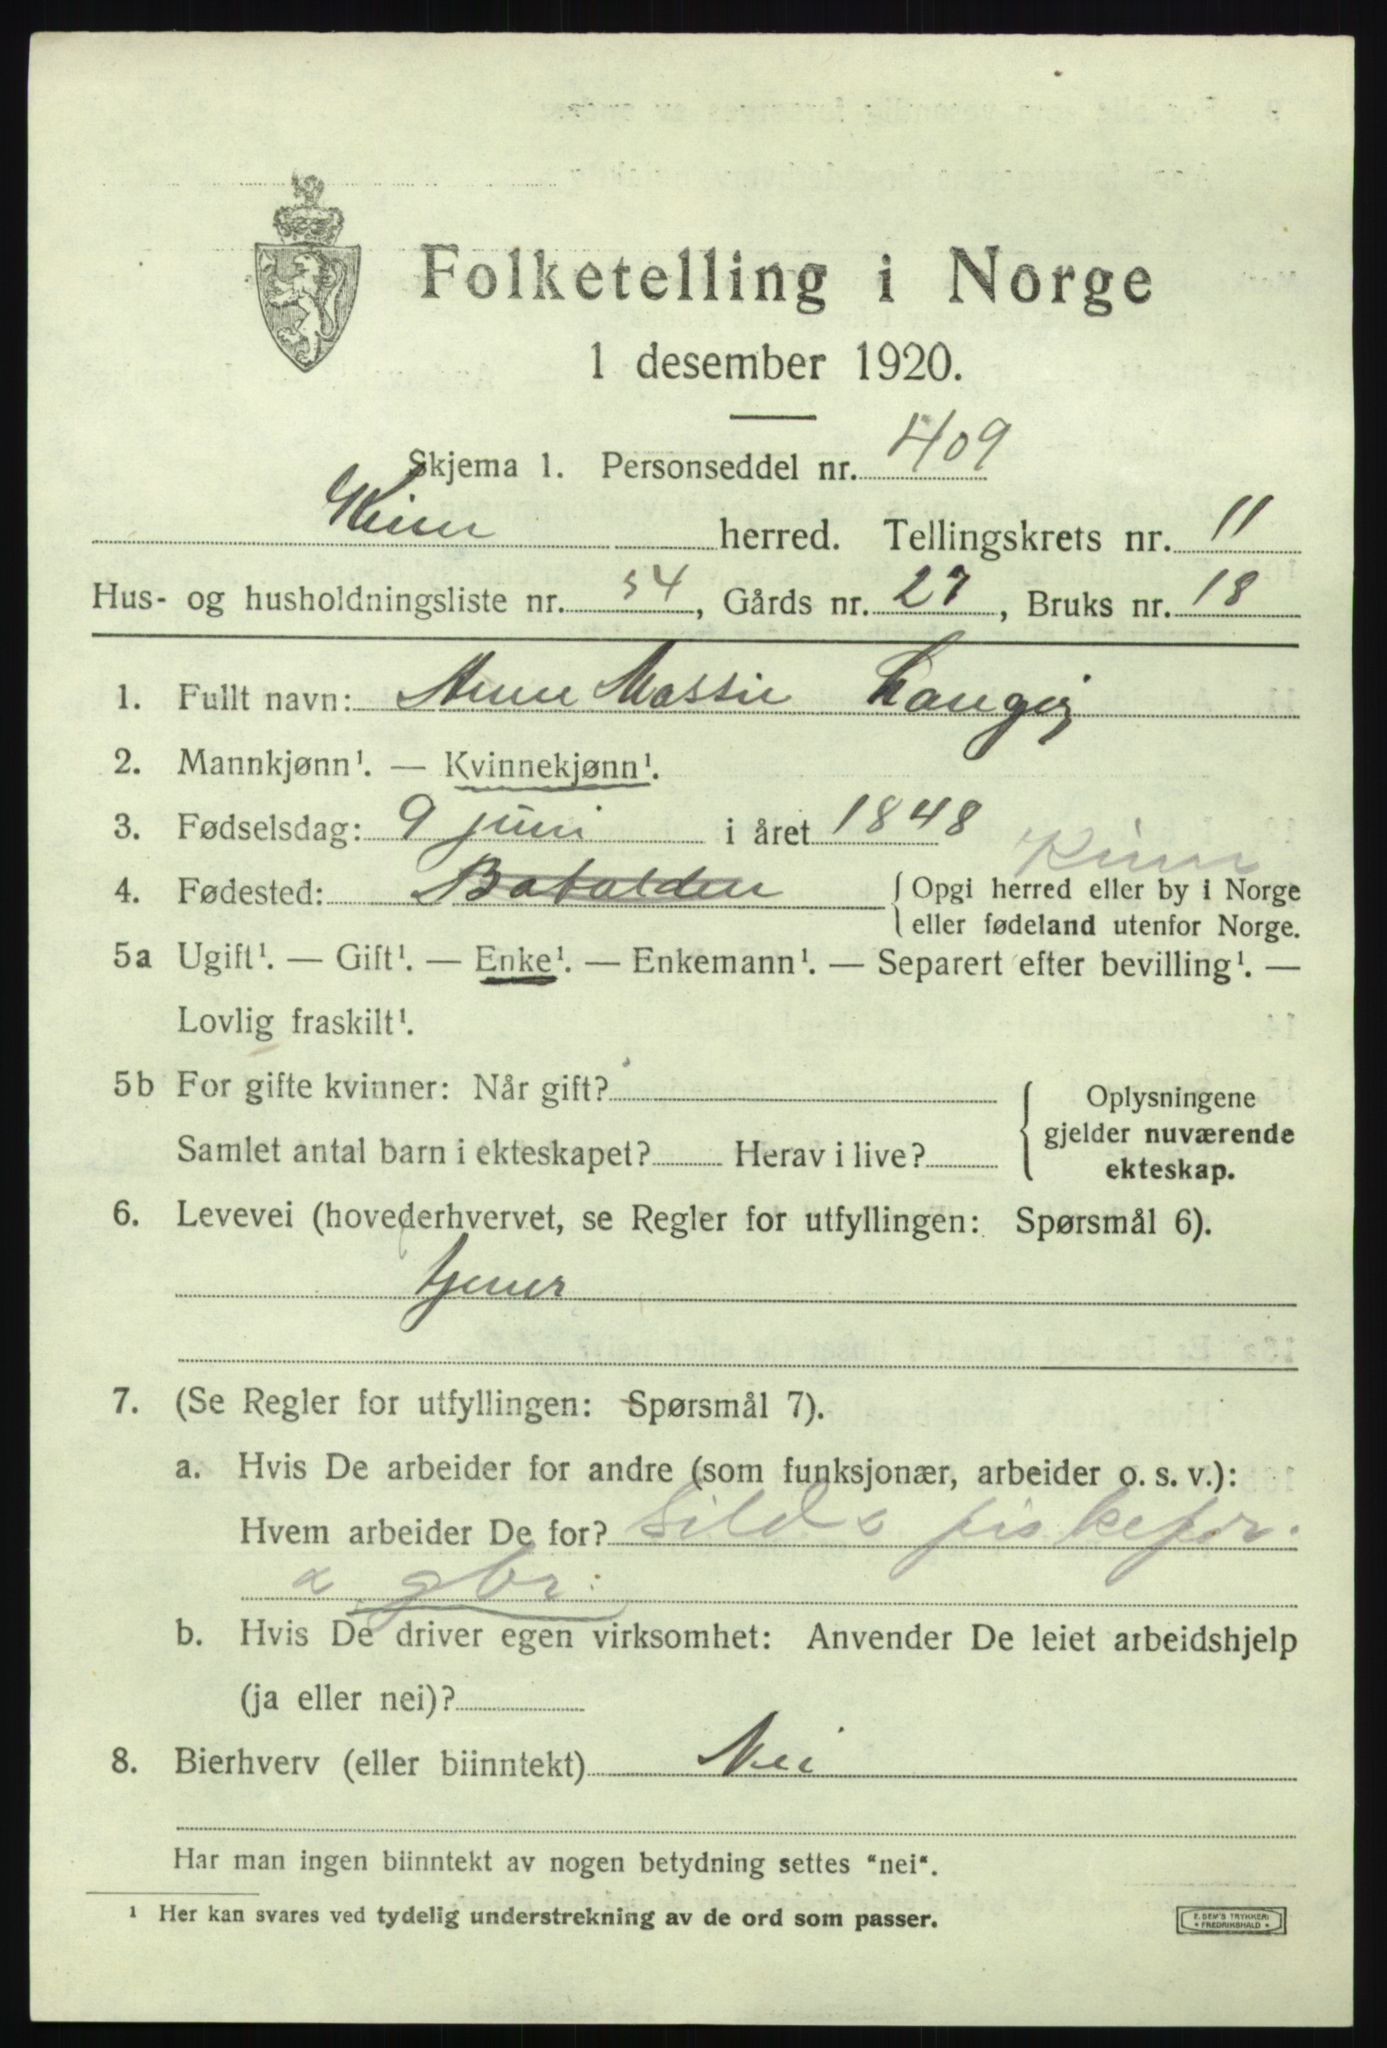 Folketelling i Norge
1 desember 1920.
Skjema 1. Personseddel nr. 409
Kinn herred. Tellingskrets nr. 11
Hus- og husholdningsliste nr. 54, Gårds nr. 27, Bruks nr. 18
1. Fullt navn: Anne Massie
2. Mannkjønn¹. — Kvinnekjønn¹.
3. Fødselsdag: 9 juni i året 1848
Kinn
4. Fødested: Batalden { Opgi herred eller by i Norge
eller fødeland utenfor Norge.
5a Ugift¹. — Gift¹. — Enke¹. — Enkemann¹. — Separert efter bevilling¹. —
Lovlig fraskilt¹.
5b For gifte kvinner: Når gift?
Samlet antal barn i ekteskapet? Herav i live?
{ Oplysningene
gjelder nuværende
ekteskap.
6. Levevei (hovederhvervet, se Regler for utfyllingen: Spørsmål 6).
7. (Se Regler for utfyllingen: Spørsmål 7).
a. Hvis De arbeider for andre (som funksjonær, arbeider o. s. v.):
Hvem arbeider De for? Sild & fiskefor.
& gbr.
b. Hvis De driver egen virksomhet: Anvender De leiet arbeidshjelp
(ja eller nei)?
8. Bierhverv (eller biinntekt) Nei
Har man ingen biinntekt av nogen betydning settes "nei".
¹ Her kan svares ved tydelig understrekning av de ord som passer.
E. SEM'S TRYKKERI
FREDRIKSHALD